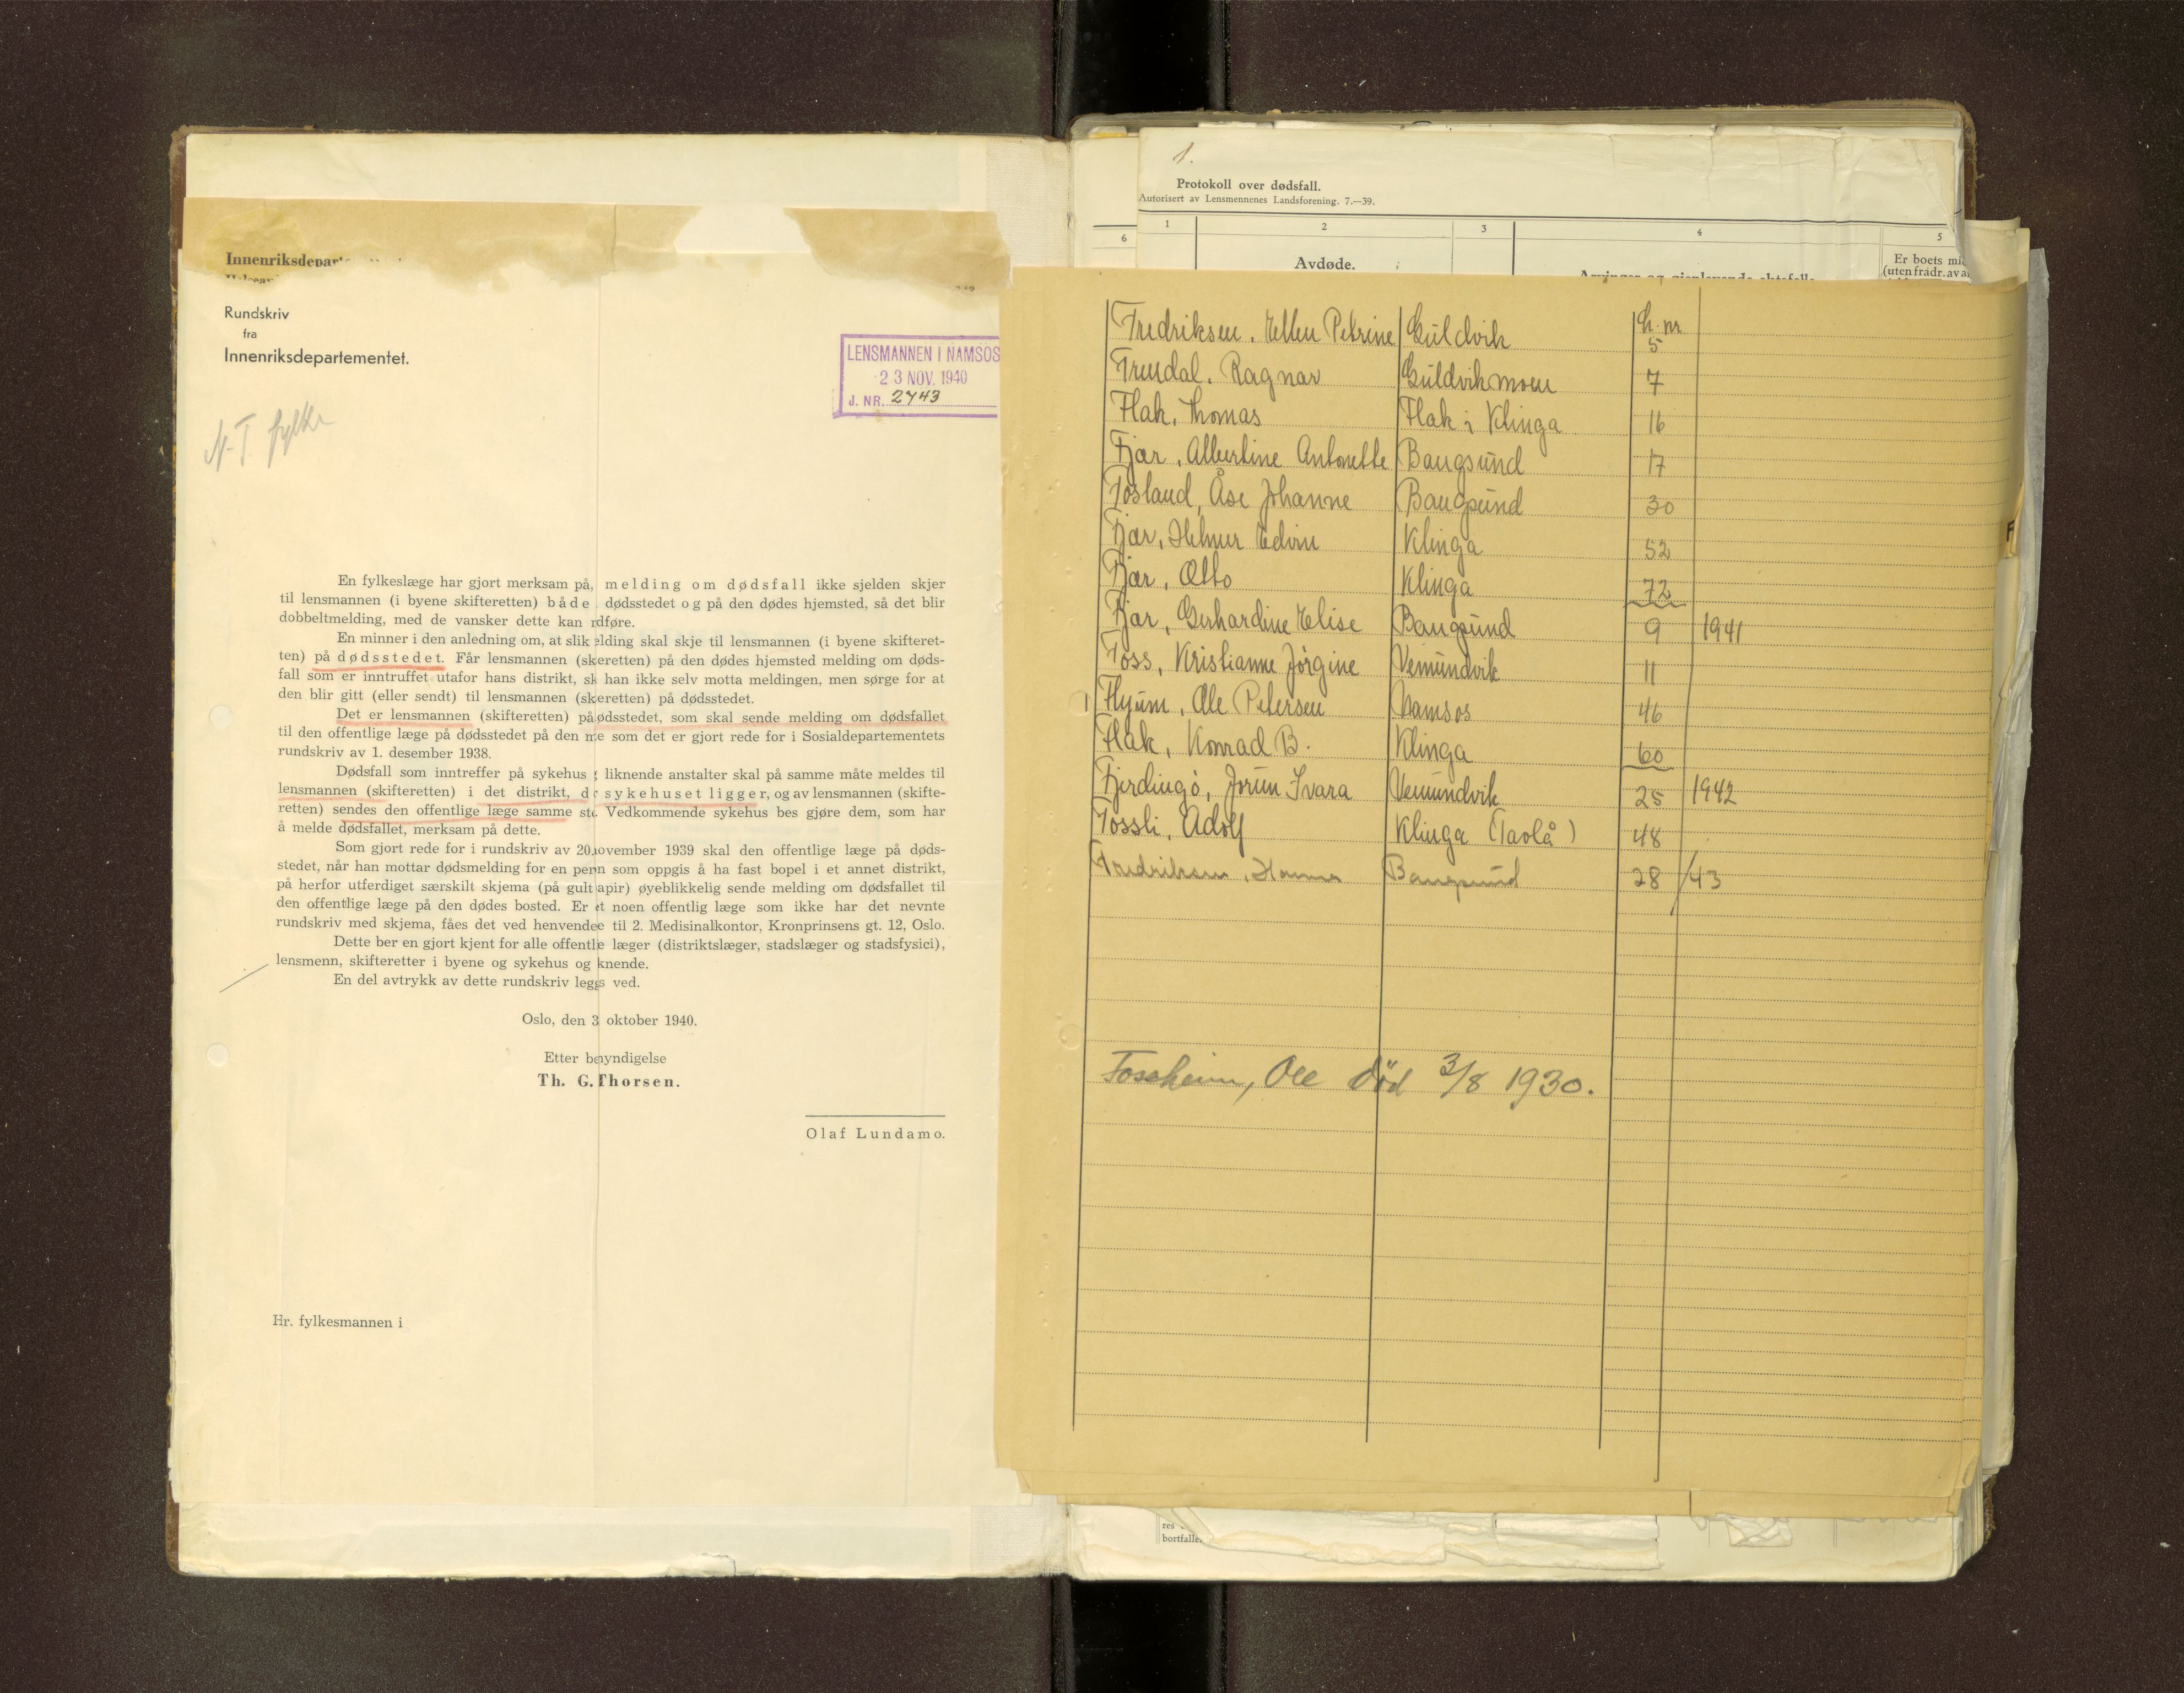 Innenriksdepart
Rundskriv
fra
Innenriksdepartementet.
LENSMANNEN I NAMSOS
23 NOV. 1940
J. NR. 2743
N-T fylke
En fylkeslæge har gjort merksam på, melding om dødsfall ikke sjelden skjer
til lensmannen (i byene skifteretten) både dødsstedet og på den dødes hjemsted, så det blir
dobbeltmelding, med de vansker dette kan dføre.
En minner i den anledning om, at slik elding skal skje til lensmannen (i byene skifteret-
ten) på dødsstedet. Får lensmannen (skeretten) på den dødes hjemsted melding om døds-
fall som er inntruffet utafor hans distrikt, sk han ikke selv motta meldingen, men sørge for at
den blir gitt (eller sendt) til lensmannen (skeretten) på dødsstedet.
Det er lensmannen (skifteretten) på ødsstedet, som skal sende melding om dødsfallet
til den offentlige læge på dødsstedet på den me som det er gjort rede for i Sosialdepartementets
rundskriv av 1. desember 1938.
Dødsfall som inntreffer på sykehus g liknende anstalter skal på samme måte meldes til
lensmannen (skifteretten) i det distrikt, dr sykehuset ligger, og av lensmannen (skifte-
retten) sendes den offentlige læge samme ste. Vedkommende sykehus bes gjøre dem, som har
å melde dødsfallet, merksam på dette.
Som gjort rede for i rundskriv av 20. november 1939 skal den offentlige læge på døds-
stedet, når han mottar dødsmelding for en pern som oppgis å ha fast bopel i et annet distrikt,
på herfor utferdiget særskilt skjema (på gult apir) øyeblikkelig sende melding om dødsfallet til
den offentlige læge på den dødes bosted. Er et noen offentlig læge som ikke har det nevnte
rundskriv med skjema, fåes det ved henvendee til 2. Medisinalkontor, Kronprinsens gt. 12, Oslo.
Dette ber en gjort kjent for alle offentle læger (distriktslæger, stadslæger og stadsfysici),
lensmenn, skifteretter i byene og sykehus og knende.
En del avtrykk av dette rundskriv leggs ved.
Oslo, den 3 oktober 1940.
Etter bemyndigelse
Th. G. Thorsen.
Olaf Lundamo.
Hr. fylkesmannen i
1.
Protokoll over dødsfall.
Autorisert av Lensmennenes Landsforening. 7.—39.
6 1 2 3 4 5
Avdøde.
Er boets mi
(uten fradr. av a
L. nr
Fredriksen, Ellen Petrine Guldvik 5
Fremdal, Ragnar Guldvikmoen 7
Flak, Thomas Flak i Klinga 16
Fjær, Albertine Antonette Bangsund 17
Fosland, Åse Johanne Bangsund 30
Fjær, Helmer Edvin Klinga 52
Fjær, Otto Klinga 72
Fjær, Gerhardine Elise Bangsund 9 1941
Foss, Kristianne Jørgine Vemundvik 11
Flyum, Ole Petersen Namsos 46
Flak, Konrad B. Klinga 60
Fjerdingø, Jorun Ivara Vemundvik 25 1942
Fossli, Adolf Klinga (Taolå) 48
Fredriksen, Hanna Bangsund 28 /43
Fossheim, Ole død 3/8 1930.
F
res
bortfalle